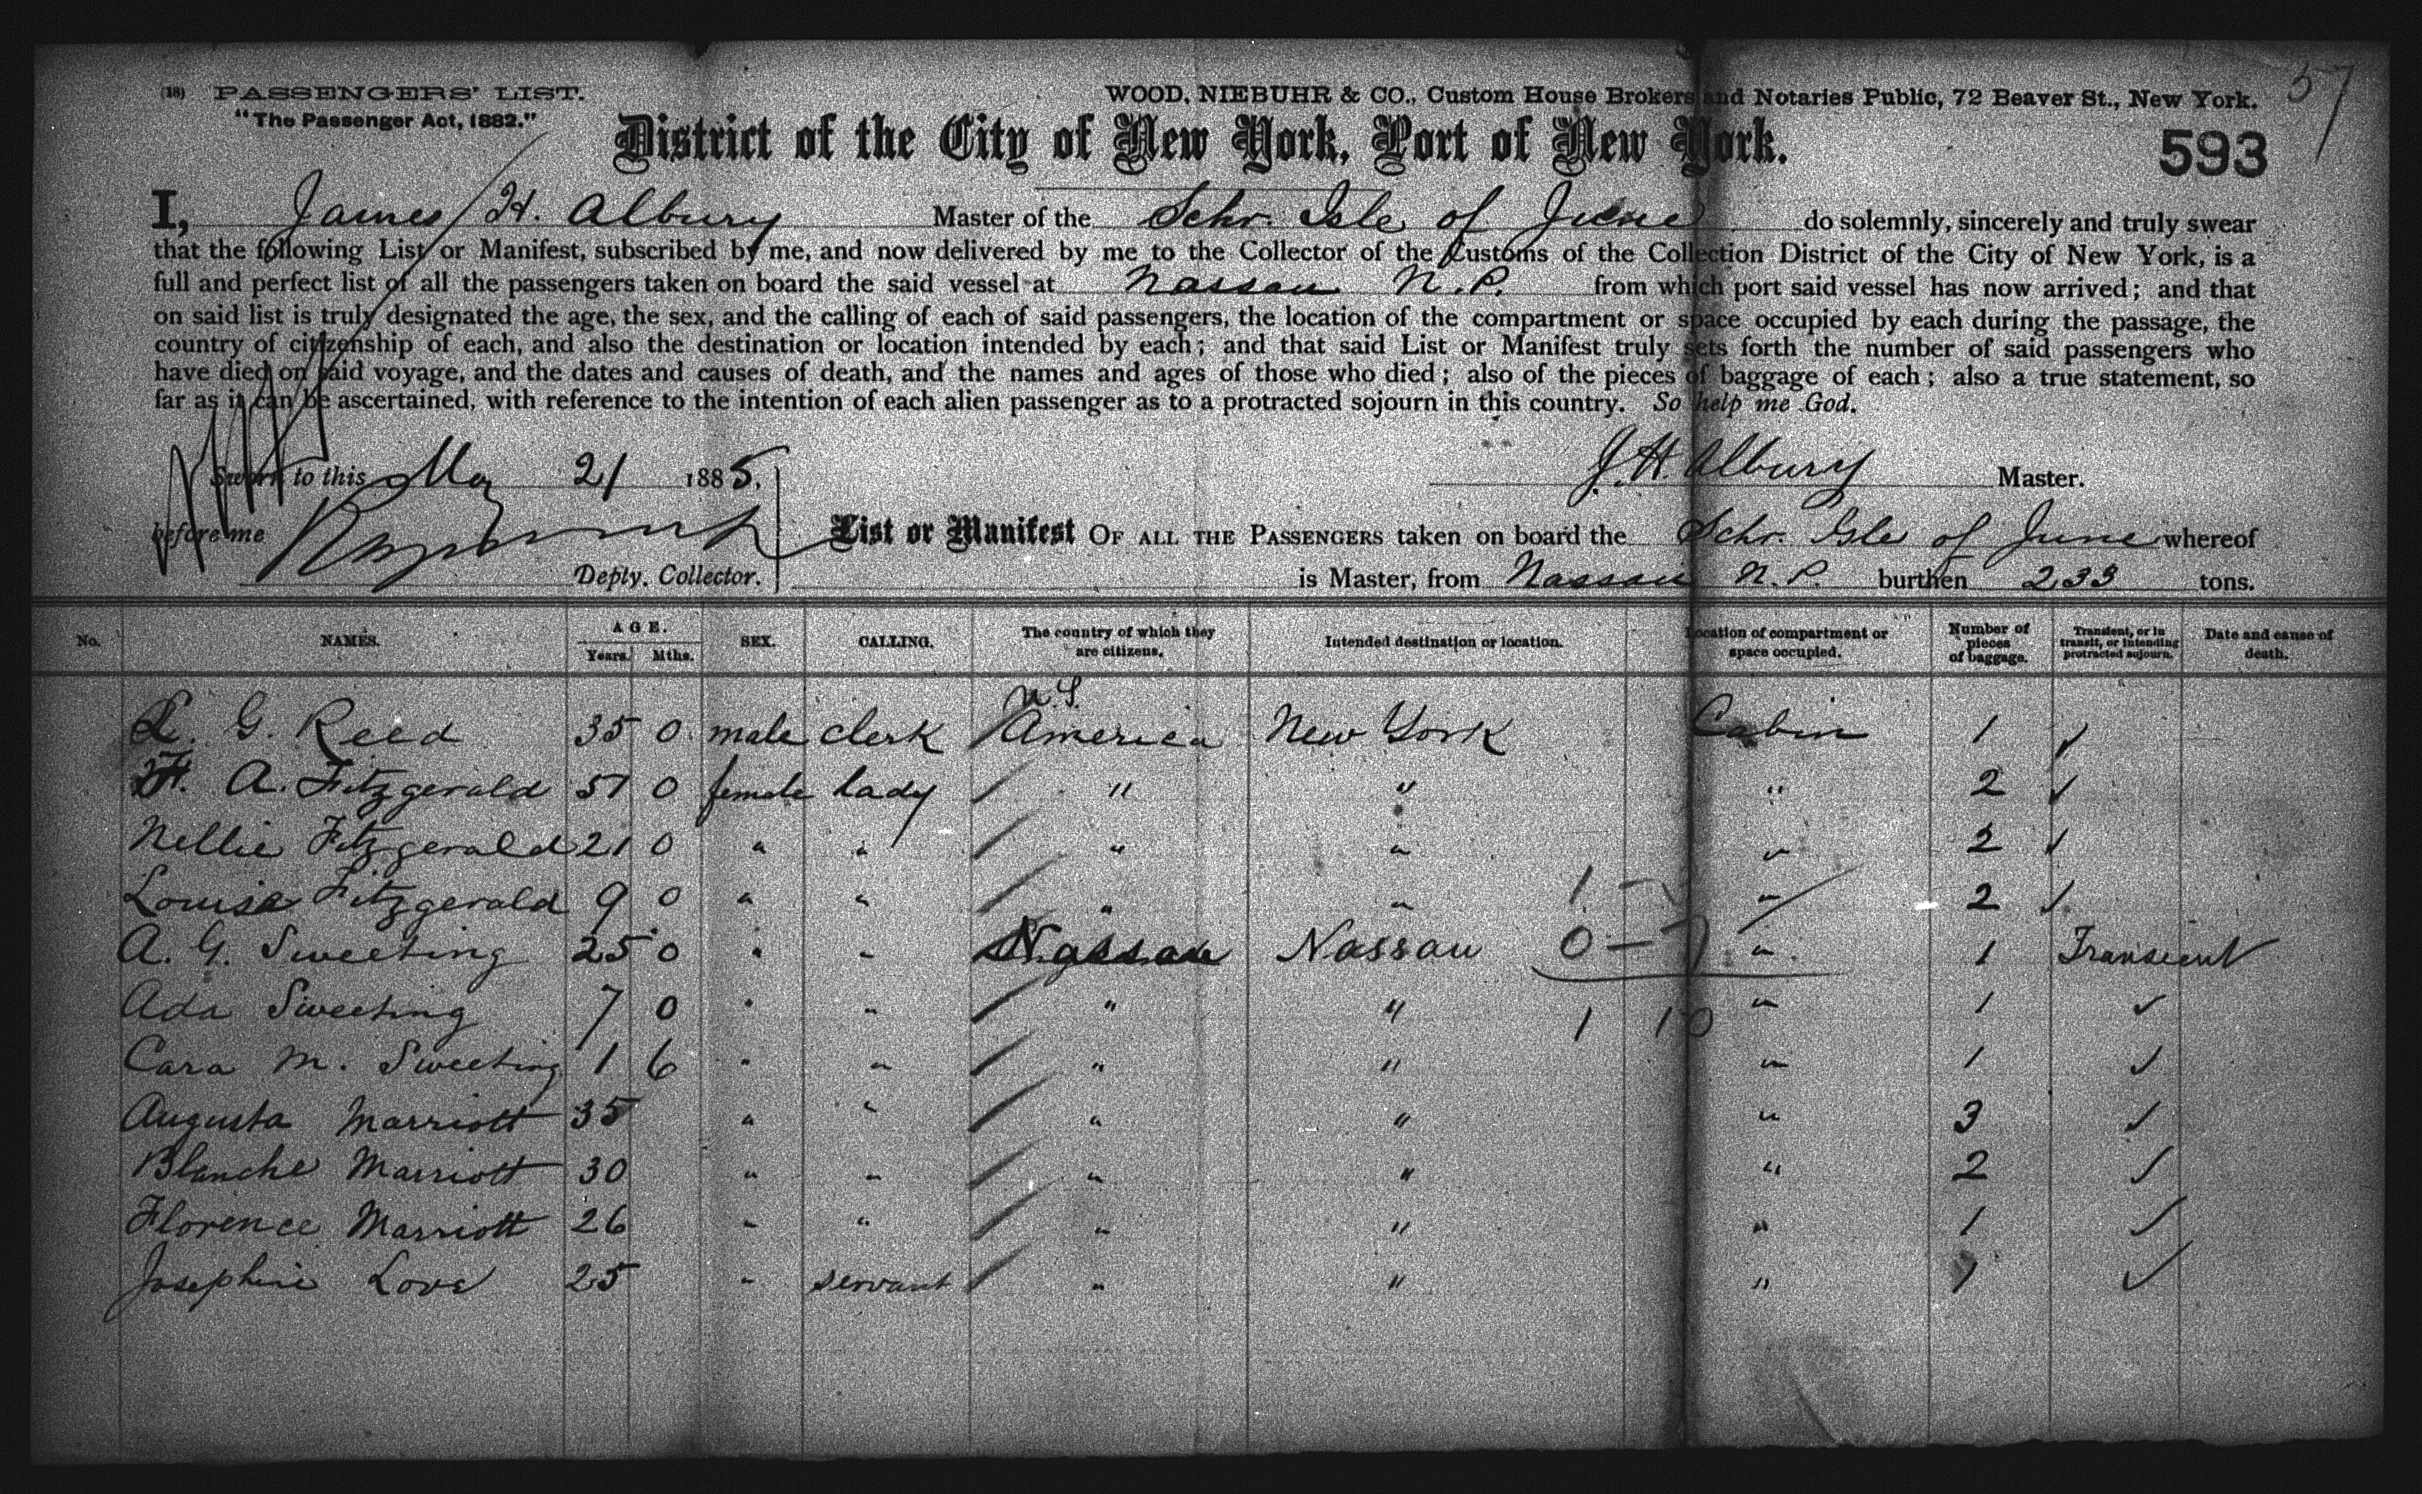 57
(18) PASSENGERS' LIST. WOOD, NIEBUHR & CO., Custom House Brokers and Notaries Public, 72 Beaver St., New York.
"The Passenger Act, 1882."
District of the City of New York, Port of New York.
593
I, James H. Albury Master of the Schr. Isle of June do solemnly, sincerely and truly swear
that the following List or Manifest, subscribed by me, and now delivered by me to the Collector of the Customs of the Collection District of the City of New York, is a
full and perfect list of all the passengers taken on board the said vessel at Nassau N.P. from which port said vessel has now arrived; and that
on said list is truly designated the age, the sex, and the calling of each of said passengers, the location of the compartment or space occupied by each during the passage, the
country of citizenship of each, and also the destination or location intended by each; and that said List or Manifest truly sets forth the number of said passengers who
have died on said voyage, and the dates and causes of death, and the names and ages of those who died; also of the pieces of baggage of each; also a true statement, so
far as it can be ascertained, with reference to the intention of each alien passenger as to a protracted sojourn in this country. So help me God.
Sworn to this May 21 1885. J. H. Albury Master.
before me
Depty. Collector.
List or Manifest OF ALL THE PASSENGERS taken on board the Schr. Isle of June whereof
is Master, from Nassau N.P. burthen 233 tons.
No. NAMES. AGE. Years. Mths. SEX. CALLING. The country of which they are citizens. Intended destination or location. Location of compartment or space occupied. Number of pieces of baggage. Transient, or in transit, or intending protracted sojourn. Date and cause of death.
L. G. Reed 35 0 male clerk U.S. America New York Cabin 1 ✓
A. Fitzgerald 51 0 female lady " " " 2 ✓
Nellie Fitzgerald 21 0 " " " " " 2 ✓
Louise Fitzgerald 9 0 " " " " " 2 ✓
A. G. Sweeting 25 0 " " Nassau Nassau " 1 Transient
Ada Sweeting 7 0 " " " " " 1 ✓
Cara M. Sweeting 1 6 " " " " " 1 ✓
Augusta Marriott 35 " " " " " 3 ✓
Blanche Marriott 30 " " " " " 2 ✓
Florence Marriott 26 " " " " " 1 ✓
Josephine Love 25 " servant " " " 1 ✓